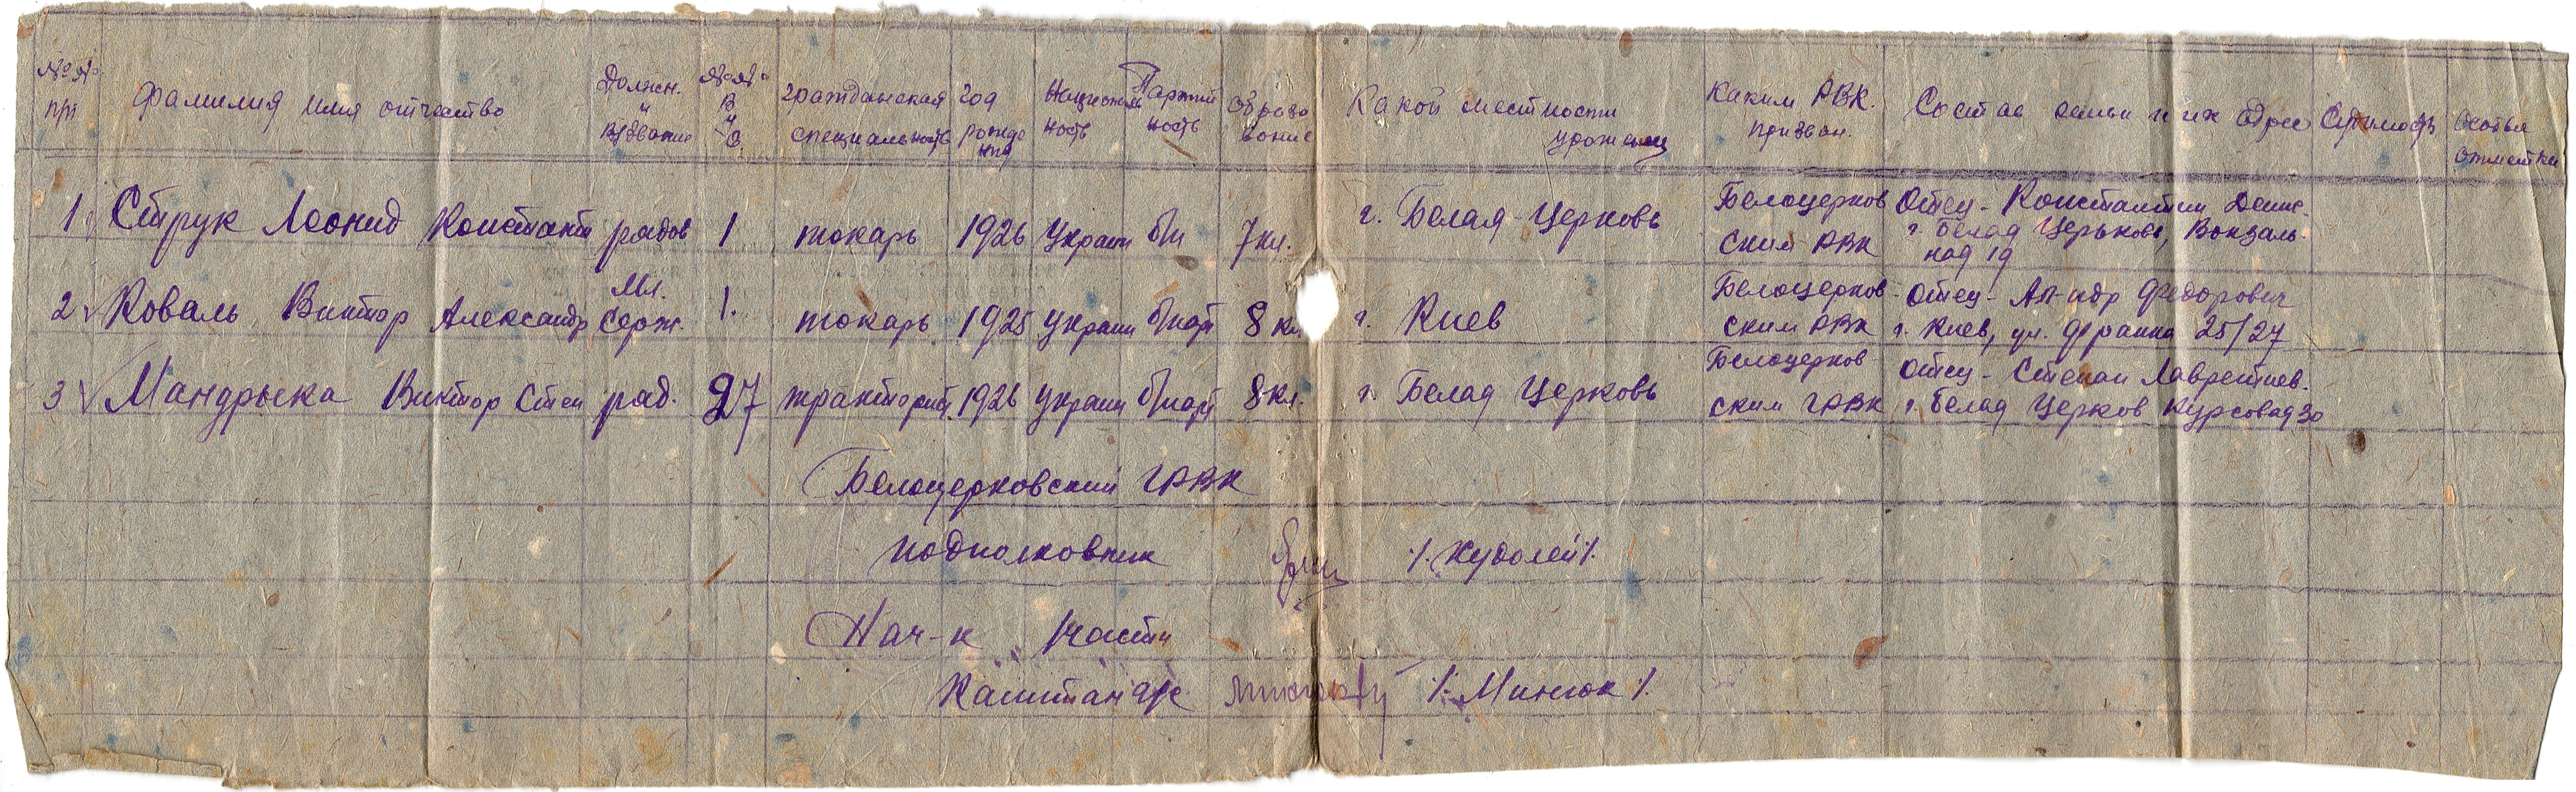 №№ п/п Фамилия имя отчество Должн. и в/звание №№ В У С. гражданская специальность год рождения Националь ность Партий ность образо вание Какой местности уроженец Каким РВК. призван. Состав семьи и их адрес Судимость Особые отметки
1 Струк Леонид Константи рядов 1 токарь 1926 Украин б/п 7 кл. г. Белая-Церковь Белоцерков ским РВК Отец - Константин Денис. г. Белая Церьковь, Вокзаль- ная 19
2 Коваль Виктор Александр Мл. Серж. 1. токарь 1925 украин б/парт 8 кл. г. Киев Белоцерков- ским РВК Отец - Ал-ндр Федорович г. Киев, ул. Франка 25/27
3 Мандрыка Виктор Степ ряд. 27 тракторист 1926 украин б/парт 8 кл. г. Белая Церковь Белоцерков ским ГРВК Отец - Степан Лаврентиев. г. Белая Церков Курсовая 30
Белоцерковский ГРВК
подполковник /. Худолей /.
Нач-к 1 части
Капитан а/с /. Минюк /.